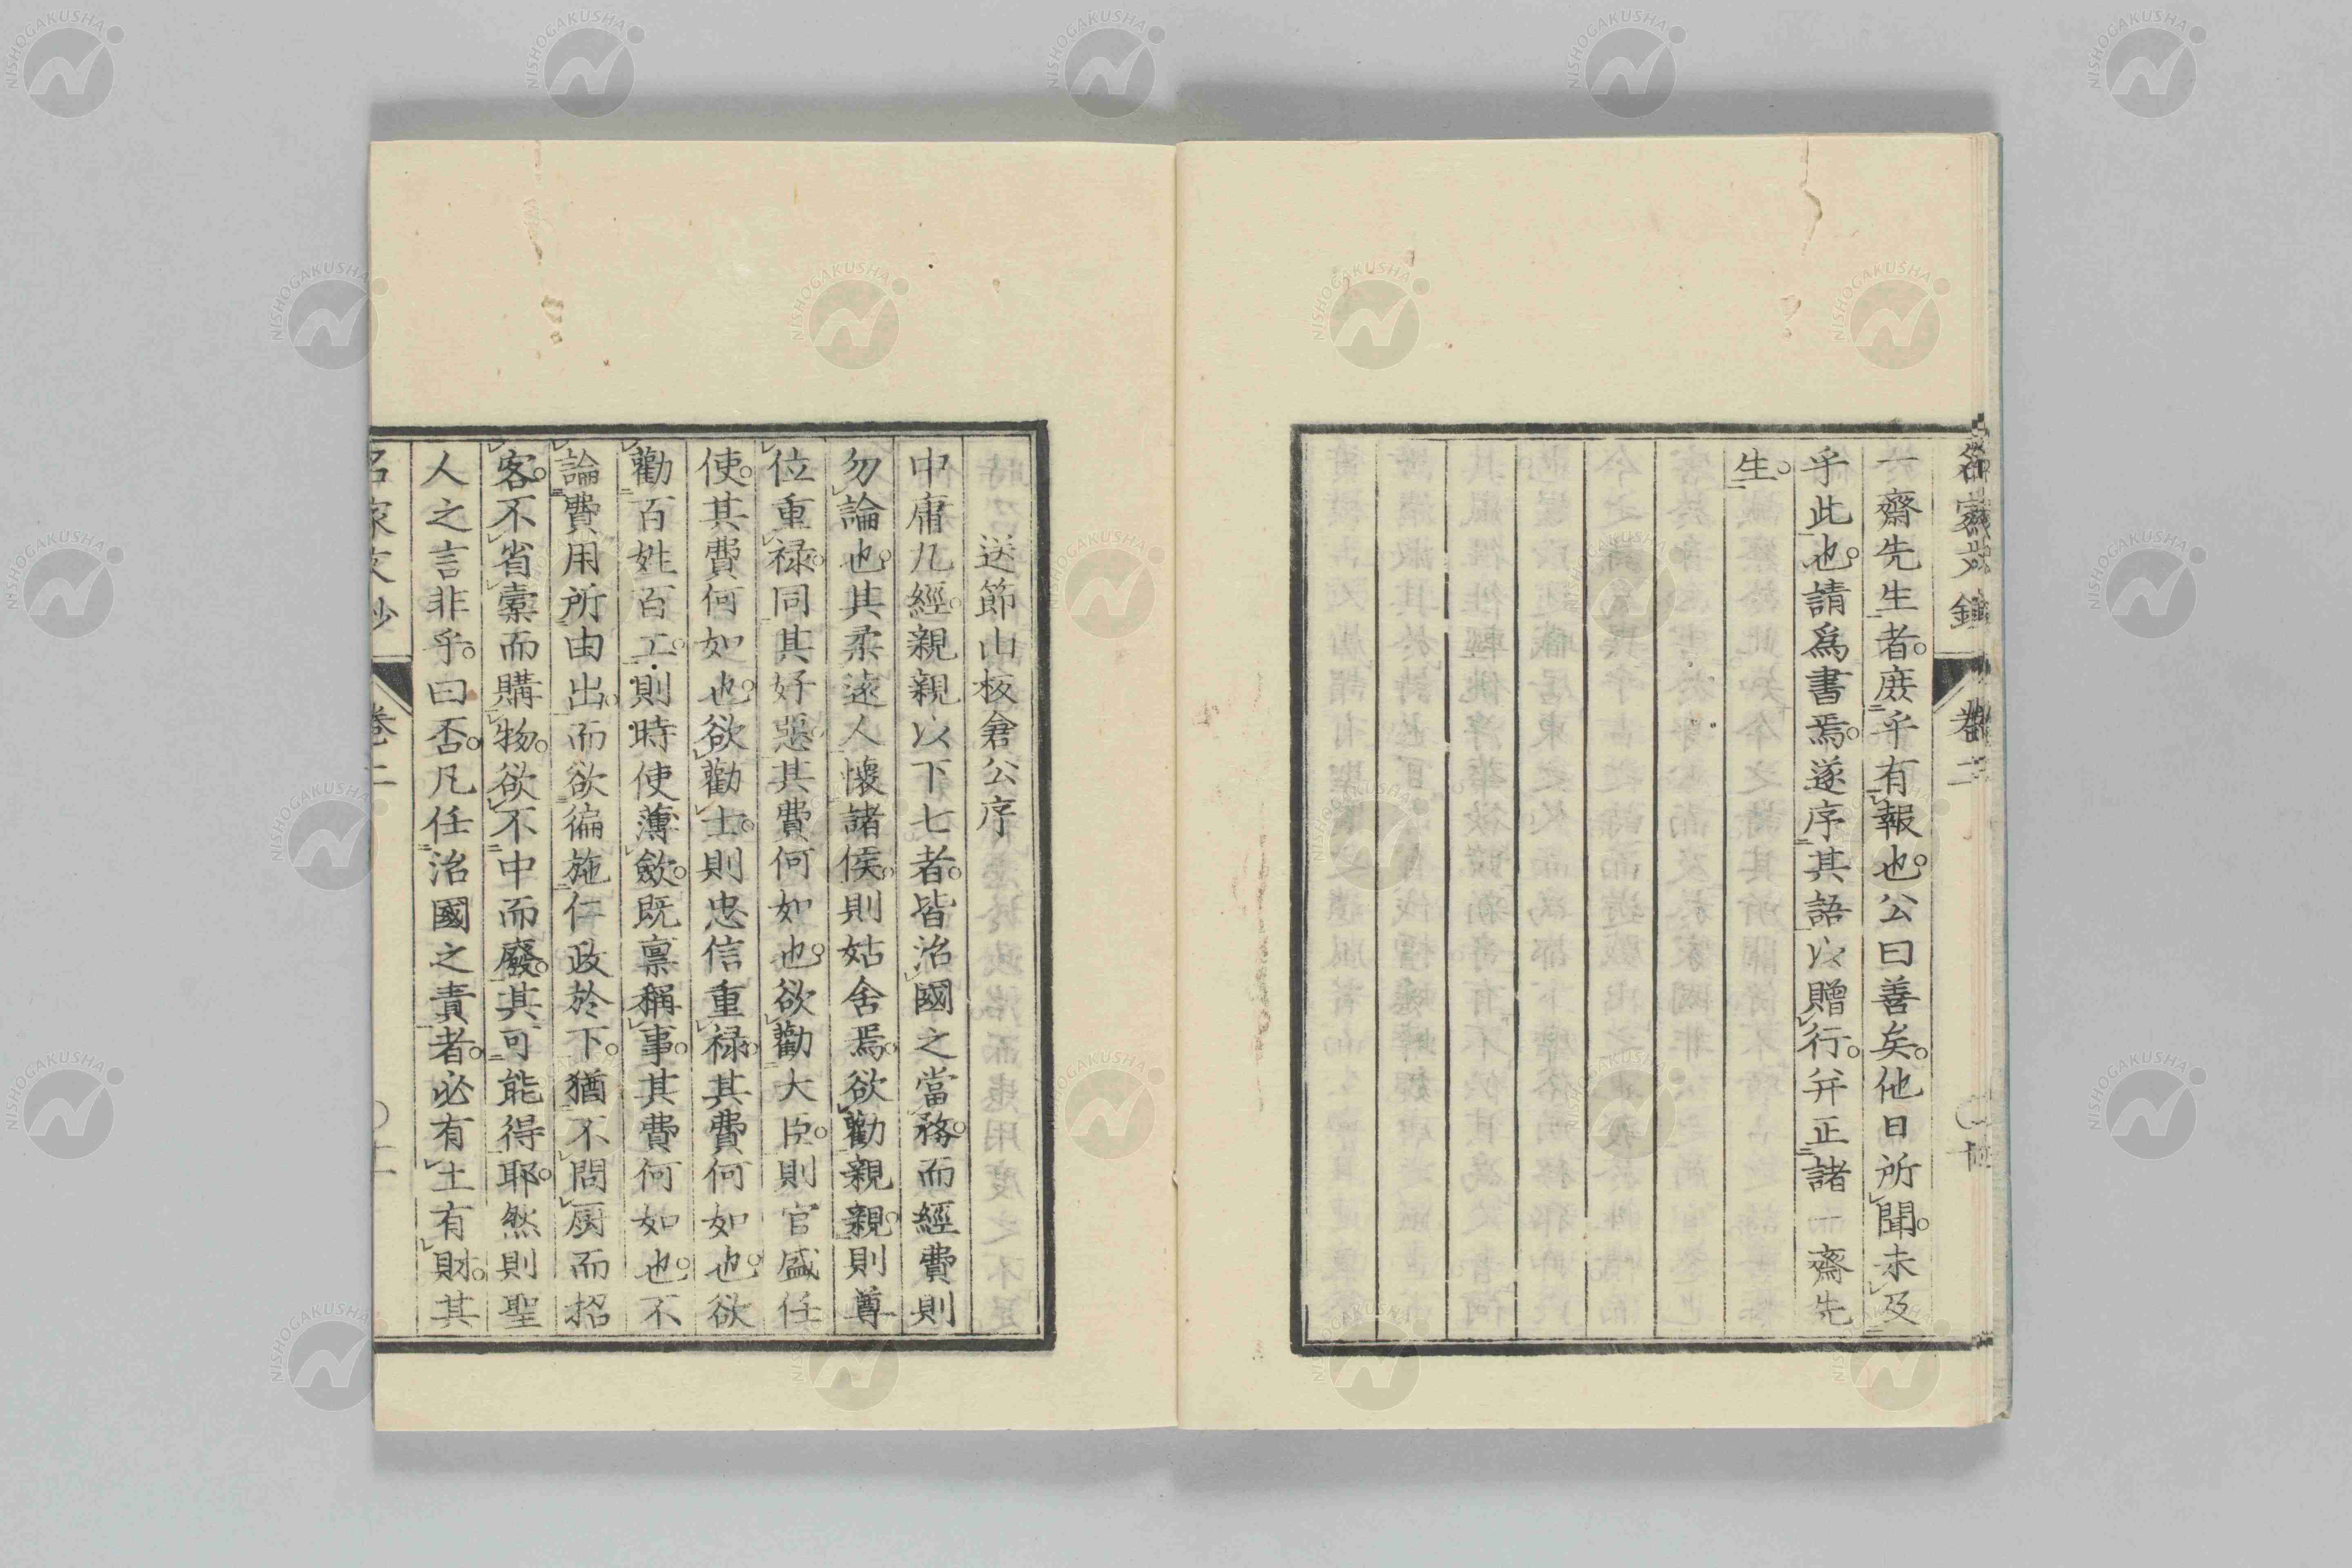 一齋先生者。庻乎有報也。公曰善矣。他日所聞。未及
乎此也。請爲書焉。遂序其語以贈行。并正諸一齋先
生。
送節山板倉公序
中庸九經。親親以下七者。皆治國之當務。而經費則
勿論也。其柔遠人懷諸侯。則姑舍焉。欲勸親親。則尊
位重禄。同其好惡。其費何如也。欲勸大臣。則官盛任
使。其費何如也。欲勸士。則忠信重禄。其費何如也。欲
勸百姓百工。則時使薄斂。既稟稱事。其費何如也。不
論費用所由出。而欲徧施仁政於下。猶不問厨而招
客。不省槖而購物。欲不中而廢。其可能得耶。然則聖
人之言非乎。曰否。凡任治國之責者。必有土有財。其
名家文抄 卷二
NISHOGAKUSHA